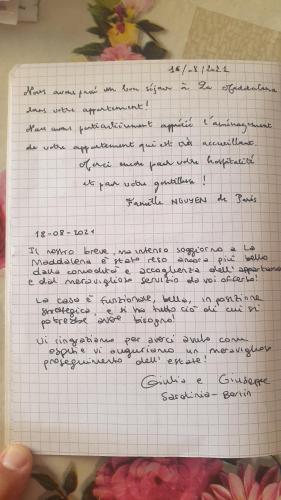 16/08/2021
Nous avons passé un bon séjour à La Maddalena
dans votre appartement!
Nous avons particulièrement apprécié l'aménagement
de votre appartement qui est très accueillant.
Merci encore pour votre hospitalité
et par votre gentillesse!
Famille NGUYEN de Paris
18-08-2021
Il nostro breve, ma intenso soggiorno a La
Maddalena è stato reso ancora più bello
dalla comodità e accoglienza dell'appartamento
e dal meraviglioso servizio da voi offerto!
La casa è funzionale, bella, in posizione
strategica, e si ha tutto ciò di cui si
potrebbe avere bisogno!
Vi ringraziamo per averci avuto come
ospiti e vi auguriamo un meraviglioso
proseguimento dell'estate!
Giulia e Giuseppe
Sardinia-Berlin